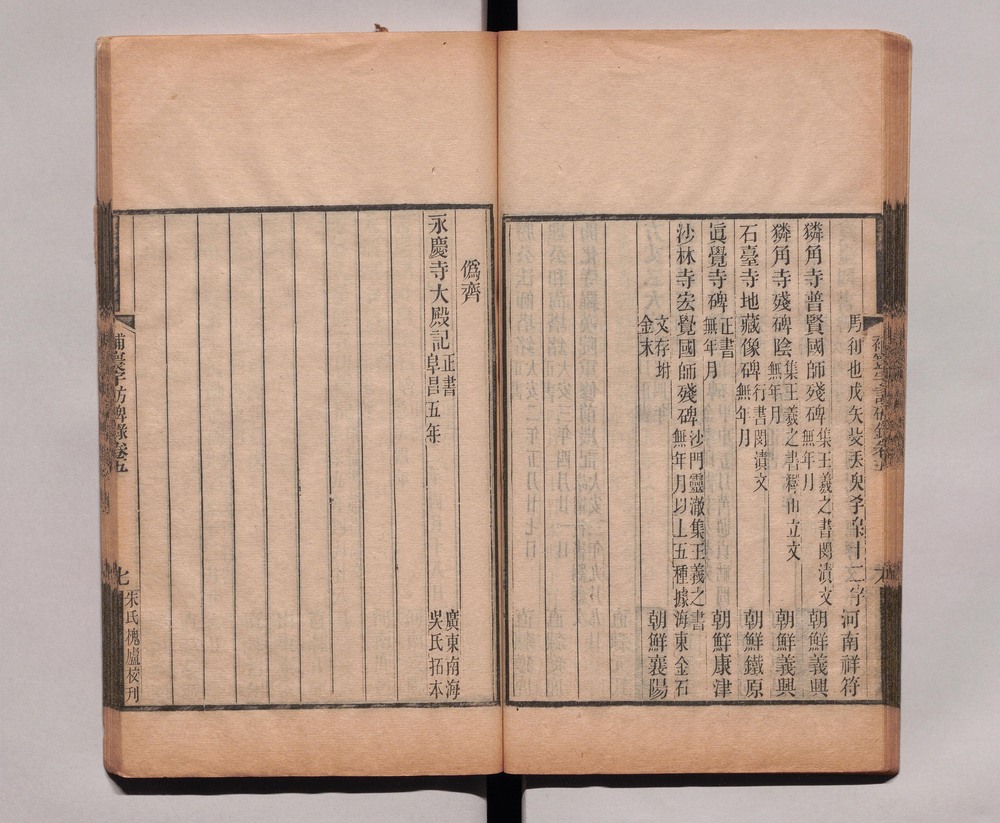 也戊矢 十二字
河南祥符
獜角寺普賢國師殘碑
集王羲之書閔漬文
無年月
朝鮮義興
獜角寺殘碑陰
集王羲之書釋山立文
無年月
朝鮮義興
石臺寺地藏像碑
行書閔漬文
無年月
朝鮮鐵原
眞覺寺碑
正書
無年月
朝鮮康津
沙林寺宏覺國師殘碑
沙門靈澈集王羲之書
無年月以上五種據海東金石
文存坿
金末
朝鮮襄陽
僞齊
永慶寺大殿記
正書
阜昌五年
廣東南海
吳氏拓本
補寰宇訪碑錄卷五
七
朱氏槐廬校刊